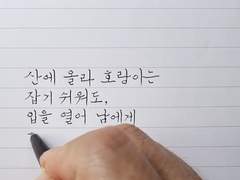 산에 올라 호랑이는
잡기 쉬워도,
입을 열어 남에게